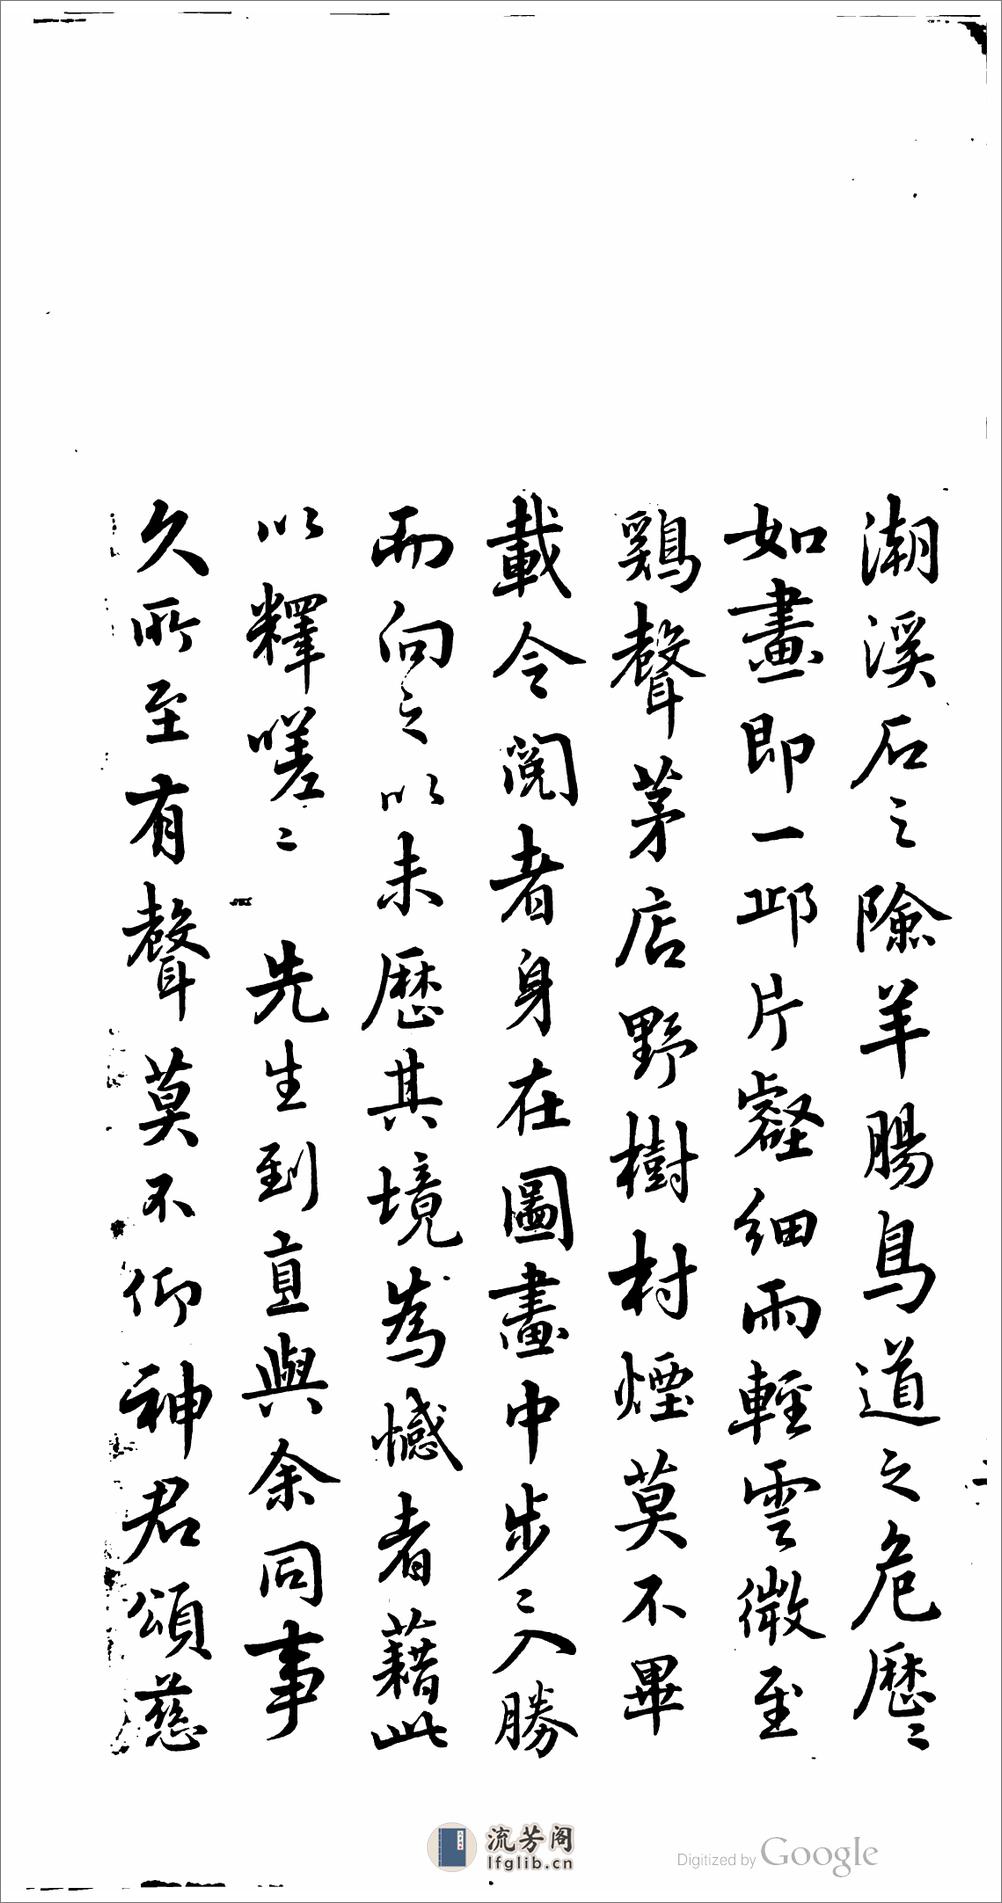 潮溪石之險羊腸鳥道之危歷〻
如畫即一邱片壑細雨輕雲微至
鷄聲茅店野樹村煙莫不畢
載令閱者身在圖畫中步〻入勝
而向之以未歷其境為憾者藉此
以釋嗟〻先生到直與余同事
久所至有聲莫不仰神君頌慈
流芳阁
lfglib.cn
Digitized by Google